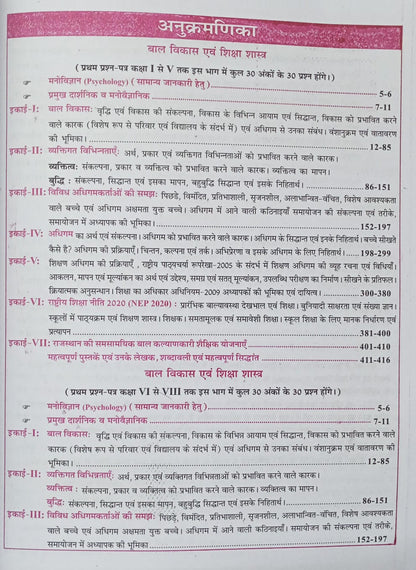 अनुक्रमणिका
बाल विकास एवं शिक्षा शास्त्र
( प्रथम प्रश्न-पत्र कक्षा I से V तक इस भाग में कुल 30 अंकों के 30 प्रश्न होंगे।)
☞ मनोविज्ञान (Psychology) ( सामान्य जानकारी हेतु ) 5-6
☞ प्रमुख दार्शनिक व मनोवैज्ञानिक 7-11
इकाई-I: बाल विकास: वृद्धि एवं विकास की संकल्पना, विकास के विभिन्न आयाम एवं सिद्धान्त, विकास को प्रभावित करने
वाले कारक (विशेष रूप से परिवार एवं विद्यालय के संदर्भ में) एवं अधिगम से उनका संबंध। वंशानुक्रम एवं वातावरण
की भूमिका। 12-85
इकाई-II: व्यक्तिगत विभिन्नताएँ: अर्थ, प्रकार एवं व्यक्तिगत विभिन्नताओं को प्रभावित करने वाले कारक।
व्यक्तित्व: संकल्पना, प्रकार व व्यक्तित्व को प्रभावित करने वाले कारक। व्यक्तित्व का मापन।
बुद्धि : संकल्पना, सिद्धान्त एवं इसका मापन, बहुबुद्धि सिद्धान्त एवं इसके निहितार्थ। 86-151
इकाई-III: विविध अधिगमकर्ताओं की समझ: पिछड़े, विमंदित, प्रतिभाशाली, सृजनशील, अलाभान्वित-वंचित, विशेष आवश्यकता
वाले बच्चे एवं अधिगम अक्षमता युक्त बच्चे। अधिगम में आने वाली कठिनाइयाँ समायोजन की संकल्पना एवं तरीके,
समायोजन में अध्यापक की भूमिका। 152-197
इकाई-IV: अधिगम का अर्थ एवं संकल्पना। अधिगम को प्रभावित करने वाले कारक। अधिगम के सिद्धान्त एवं इनके निहितार्थ। बच्चे सोखते
कैसे है? अधिगम की प्रक्रियाएँ। चिन्तन, कल्पना एवं तर्क। अभिप्रेरणा व इसके अधिगम के लिए निहितार्थ। 198-299
इकाई-V: शिक्षण अधिगम की प्रक्रियाएँ , राष्ट्रीय पाठ्यचर्या रूपरेखा-2005 के संदर्भ में शिक्षण अधिगम की व्यूह रचना एवं विधियाँ।
आकलन, मापन एवं मूल्यांकन का अर्थ एवं उद्देश्य, समग्र एवं सतत् मूल्यांकन, उपलब्धि परीक्षण का निर्माण। सीखने के प्रतिफल।
क्रियात्मक अनुसन्धान। शिक्षा का अधिकार अधिनियम-2009 अध्यापकों की भूमिका एवं दायित्व। 300-380
इकाई-VI: राष्ट्रीय शिक्षा नीति 2020 (NEP 2020) : प्रारंभिक बाल्यावस्था देखभाल एवं शिक्षा। बुनियादी साक्षरता एवं संख्या ज्ञान।
स्कूलों में पाठ्यक्रम एवं शिक्षण शास्त्र। शिक्षक। समतामूलक एवं समावेशी शिक्षा। स्कूल शिक्षा के लिए मानक निर्धारण एवं
प्रत्यापन 381-400
इकाई-VII: राजस्थान की समसामयिक बाल कल्याणकारी शैक्षिक योजनाएँ 401-410
महत्वपूर्ण पुस्तकें एवं उनके लेखक, शब्दावली एवं महत्वपूर्ण सिद्धांत 411-416
बाल विकास एवं शिक्षा शास्त्र
( प्रथम प्रश्न-पत्र कक्षा VI से VIII तक इस भाग में कुल 30 अंकों के 30 प्रश्न होंगे।)
☞ मनोविज्ञान (Psychology) ( सामान्य जानकारी हेतु ) 5-6
☞ प्रमुख दार्शनिक व मनोवैज्ञानिक 7-11
इकाई-I: बाल विकास: वृद्धि एवं विकास की संकल्पना, विकास के विभिन्न आयाम एवं सिद्धान्त, विकास को प्रभावित करने वाले
कारक (विशेष रूप से परिवार एवं विद्यालय के संदर्भ में) एवं अधिगम से उनका संबंध। वंशानुक्रम एवं वातावरण की
भूमिका। 12-85
इकाई-II: व्यक्तिगत विभिन्नताएँ: अर्थ, प्रकार एवं व्यक्तिगत विभिन्नताओं को प्रभावित करने वाले कारक।
व्यक्तित्व : संकल्पना, प्रकार व व्यक्तित्व को प्रभावित करने वाले कारक। व्यक्तित्व का मापन।
बुद्धि: संकल्पना, सिद्धान्त एवं इसका मापन, बहुबुद्धि सिद्धान्त एवं इसके निहितार्थ। 86-151
इकाई-III: विविध अधिगमकर्ताओं की समझ: पिछड़े, विमंदित, प्रतिभाशाली, सृजनशील, अलाभान्वित-वंचित, विशेष आवश्यकता
वाले बच्चे एवं अधिगम अक्षमता युक्त बच्चे। अधिगम में आने वाली कठिनाइयाँ। समायोजन की संकल्पना एवं तरीके,
समायोजन में अध्यापक की भूमिका 152-197